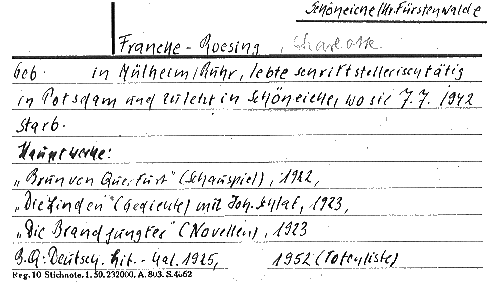 Schöneiche/Kr. Fürstenwalde
Francke-Roesing, Charlotte
geb. in Mülheim/Ruhr, lebte schriftstellerisch tätig
in Potsdam und zuletzt in Schöneiche, wo sie 7.7.1942
starb.
Hauptwerke:
„Brun von Querfurt" (Schauspiel), 1922,
„Die Linden" (Gedichte) mit Joh. Schlaf, 1923,
„Die Brandjungfer" (Novellen), 1923
B.Q: Deutsch. Lit.-Kal. 1925, 1952 (Totenliste)
Reg. 10 Stichnote. 1. 50. 232000. A. 803. S. 4662